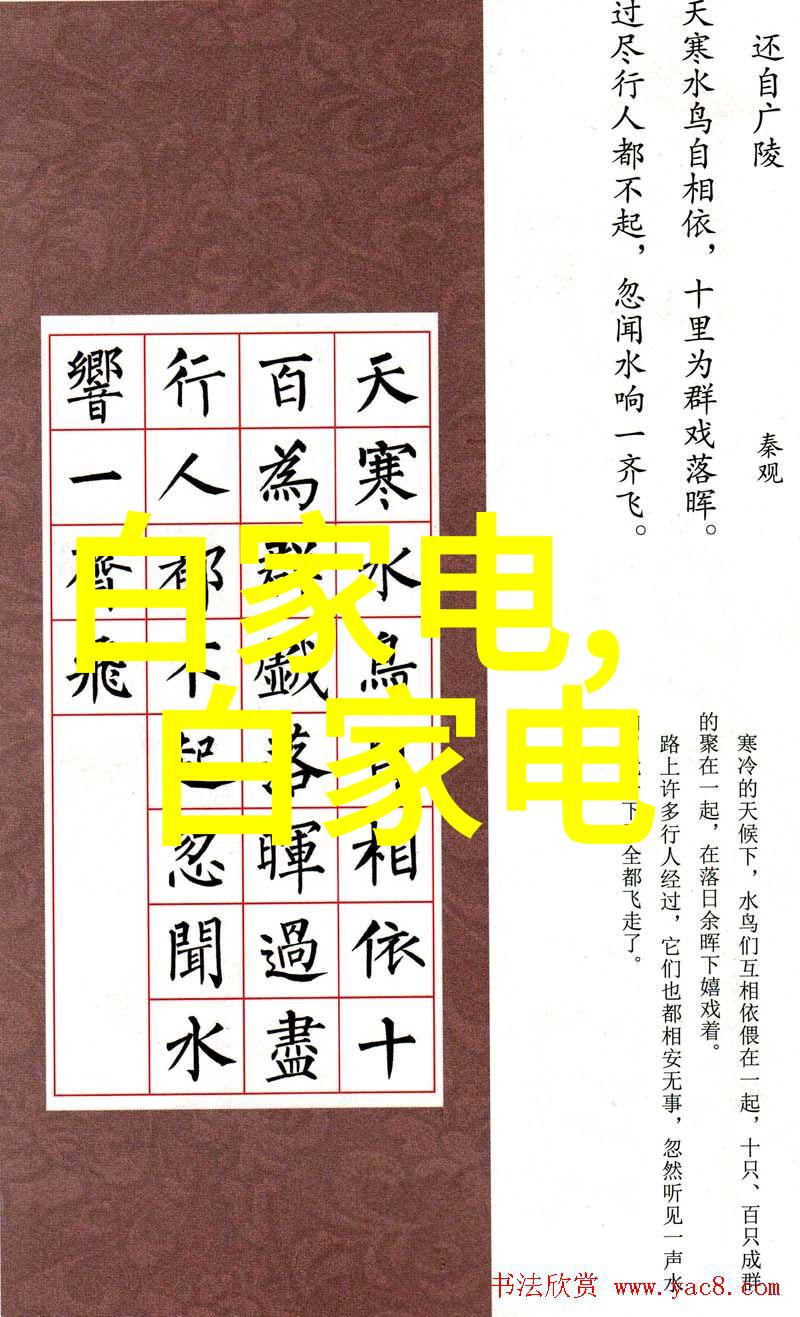 还自广陵
秦观
天寒水鸟自相依，十里为群戏落晖。
过尽行人都不起，忽闻水响一齐飞。
寒冷的天候下，水鸟们互相依偎在一起，十只、百只成群
的聚在一起，在落日余晖下嬉戏着。
路上许多行人经过，它们也都相安无事，忽然听见一声水
下 全都飞走了。
天寒水鳥自相依十
百為群戲落暉過盡
行人都不起忽聞水
響一齊飛
自家电,
自家电
书法欣赏 www.yac8.com